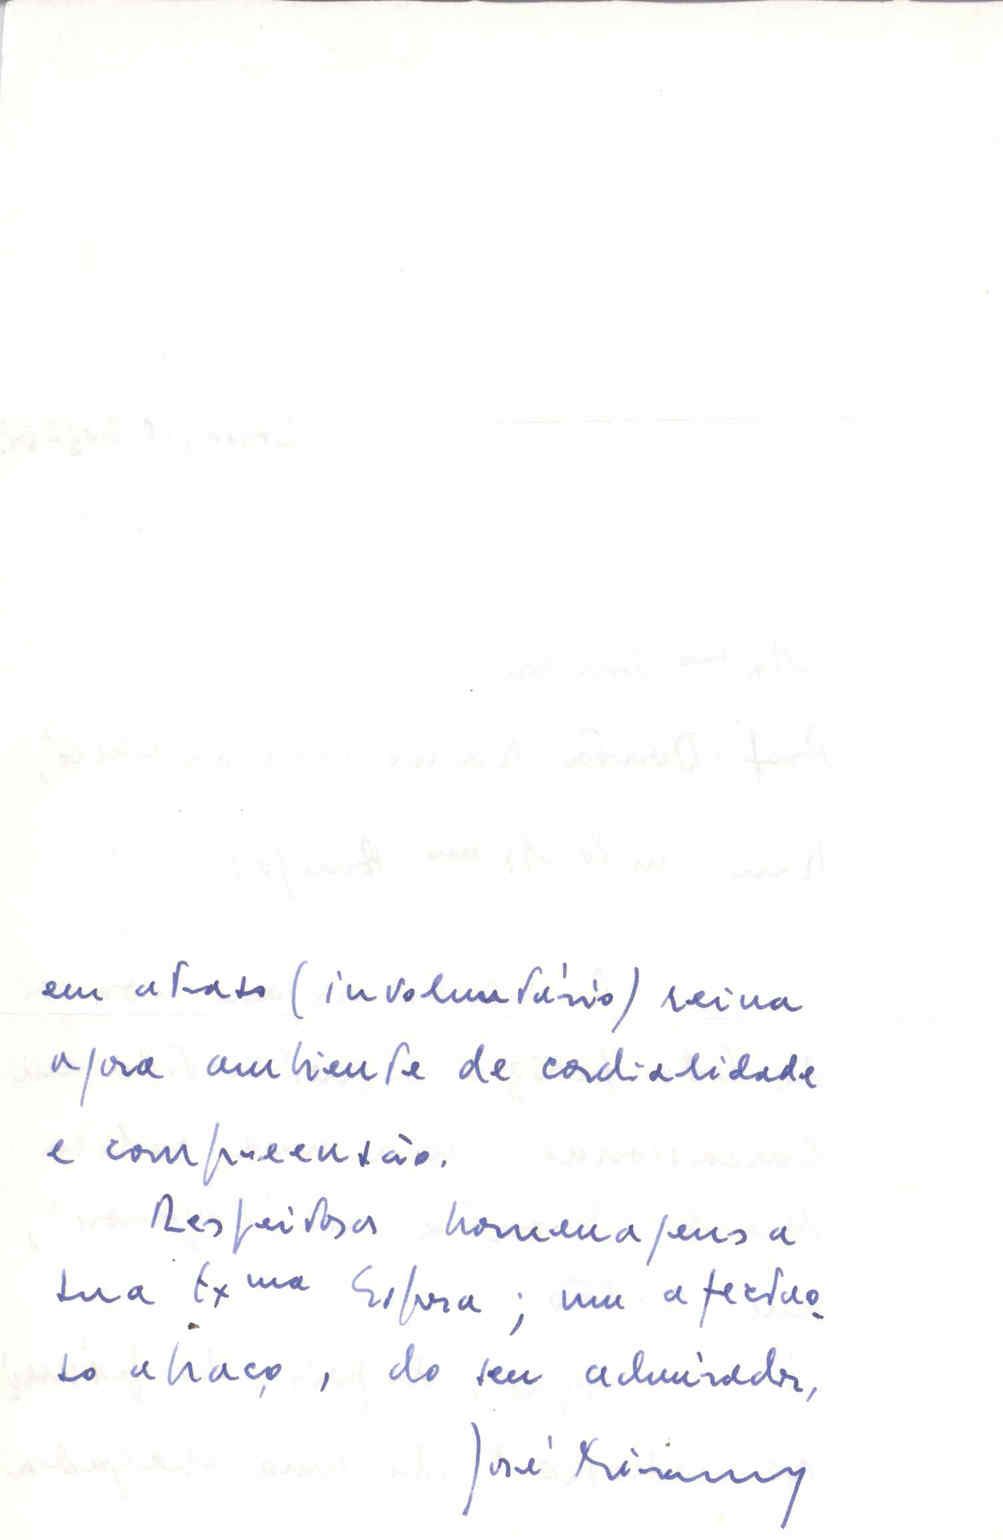 em atraso (involuntário) reina
agora ambiente de cordialidade
e compreensão.
Respeitosas homenagens a
sua Exma Esposa; um afectuo-
so abraço, do seu admirador,
José